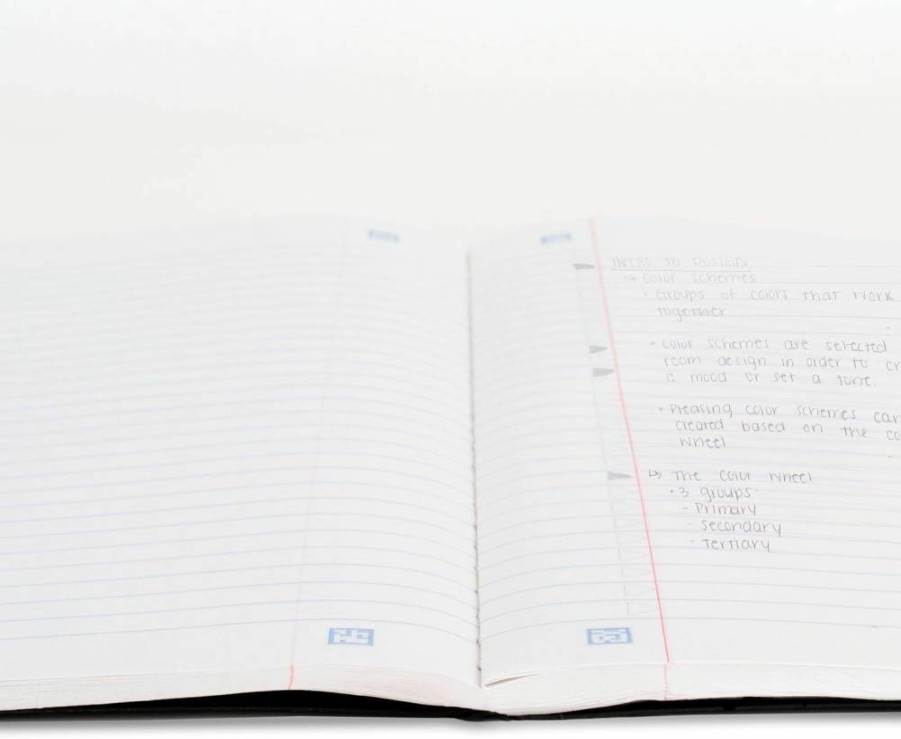 INTRO TO DESIGN
↳ Color Schemes
• Groups of colors that work
together
• Color schemes are selected
room design in order to cr
a mood or set a tone.
• Pleasing color schemes can
created based on the co
wheel
↳ The color wheel
• 3 groups
- Primary
- Secondary
- Tertiary